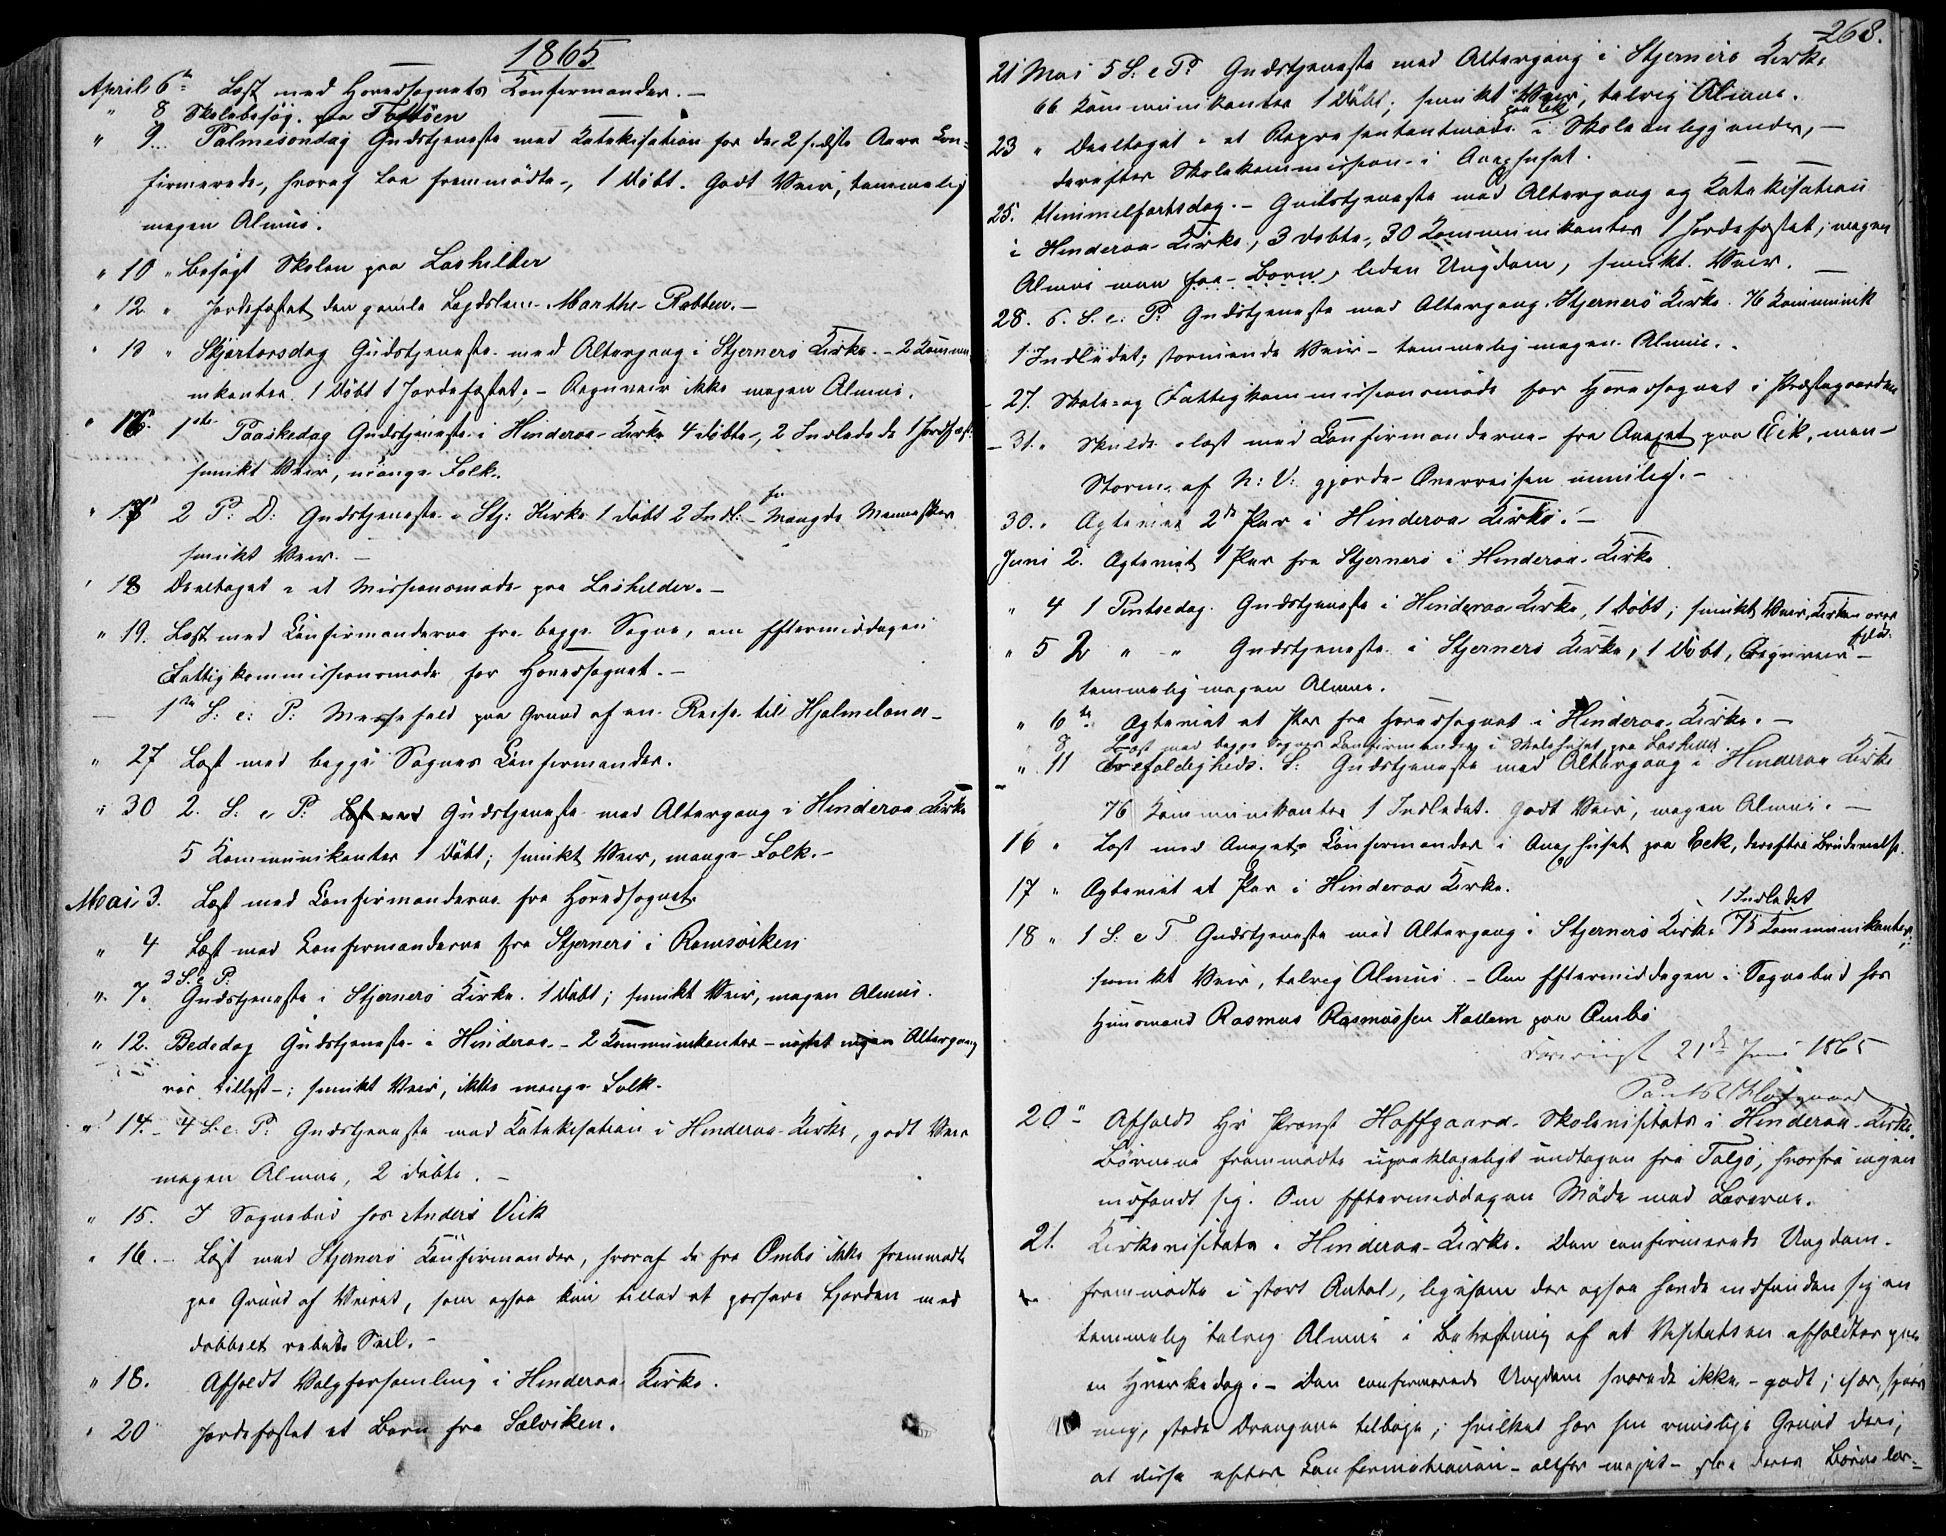 1865
April 6te Læst med Hovedsognets Confirmander. —
" 8 Skolebesøg paa Foldöen
" 9. Palmesöndag Gudstjeneste med Katekisation for de 2 sidste Aars Con-
firmerede, hvoraf faa fremmödte, 1 Döbt. Godt Veir, temmelig
megen Almue.
" 10 " Besögt Skolen paa Lashilder
" 12 " Jordfæstet den gamle Lægdslem Marthe Rabben. —
" 13 " Skjærtorsdag Gudstjeneste med Altergang i Stjernerö Kirke. — 2 Kommu-
nikanter 1 Döbt 1 Jordfæstet, — Regnveir ikke megen Almue.
" 16. 1ste Paaskedag Gudstjeneste i Hinderaa Kirke 4 döbte, 2 Indledede 1 Jordfæst.
smukt Veir, mange Folk.
" 17 2 P: D: Gudstjeneste i Stj: Kirke 1 döbt 2 Indl: — Mængde Mennesker
smukt Veir. —
" 18 Deeltaget i et Missionsmöde paa Lashilder. —
" 19. Læst med Confirmanderne fra begge Sogne, om Eftermiddagen
Fattigkommissionsmöde for Hovedsognet. —
— 1ste S: e: P: Messefald paa Grund af en Reise til Hjelmeland —
" 27 Læst med begge Sognes Confirmander.
" 30 2. S: e P: Gudstjeneste med Altergang i Hinderaa Kirke
5 Kommunikanter 1 Döbt; smukt Veir, mange Folk. —
Mai 3. Læst med Confirmanderne fra Hovedsognet.
" 4 Læst med Confirmanderne fra Stjernerö i Ramsviken
3 S. e P.
" 7. Gudstjeneste i Stjernerö Kirke. 1 Döbt; smukt Veir, megen Almue.
" 12. Bededag Gudstjeneste i Hinderaa — 2 Kommunikanter — uagtet ingen Altergang
var tillyst —; smukt Veir, ikke mange Folk.
" 14. — 4 S. e. P: Gudstjeneste med Katekisation i Hinderaa Kirke, godt Veir
megen Almue, 2 döbte. —
" 15. I Sognebud hos Anders Viik
" 16. — Læst med Stjernerö Confirmander, hvoraf de fra Ombo ikke fremmödte
paa Grund af Veiret, som ogsaa kun tillod at passere Fjorden med
dobbelt rebede Seil. —
" 18. Afholdt Valgforsamling i Hinderaa Kirke.
" 20 Jordfæstet et Barn fra Sælviken.
268.
21 Mai 5 S. e P: Gudstjeneste med Altergang i Stjernerö Kirke
66 Kommunikanter 1 Döbt; smukt Veir, talrig Almue.
paa Eik
23 " Deeltaget i et Repræsentantmöde i Skoleanliggender, —
derefter Skolekommission i Annexhuset.
25. Himmelfartsdag. — Gudstjeneste med Altergang og Katekisation
i Hinderaa Kirke, 3 döbte, 30 Kommunikanter 1 Jordfæstet; megen
Almue men faa Börn, liden Ungdom, smukt Veir. —
28. 6. S. e. P: Gudstjeneste med Altergang Stjernerö Kirke. 76 Kommunik
1 Indledet; stormende Veir — temmelig megen Almue. —
— 27. Skole- og Fattigkommissionsmöde for Hovedsognet i Præstegaarden
— 31. Skulde læst med Confirmanderne fra Annexet paa Eik, men —
Storm af N: V: gjorde Overreisen umulig. —
30. Ægteviet 2de Par i Hinderaa Kirke. —
Juni 2. Ægteviet 1 Par fra Stjernerö i Hinderaa Kirke
" 4 1 Pintsedag. Gudstjeneste i Hinderaa Kirke, 1 Döbt; smukt Veir, Kirken over
fyldt.
" 5 2 " " Gudstjeneste i Stjernerö Kirke, 1 Döbt, Regnveir —
temmelig megen Almue.
" 6te Ægteviet et Par fra Hovedsognet i Hinderaa Kirke. —
" 8 Læst med begge Sognes Confirmander i Skolehuset paa Lashilder
" 11 Trefoldigheds. S: Gudstjeneste med Altergang i Hinderaa Kirke
76 Kommunikanter 1 Indledet. Godt Veir, megen Almue. —
16 " Læst med Annexets Confirmander i Annexhuset paa Eek, derefter Brudevielse.
17 " Ægteviet et Par i Hinderaa Kirke.
1 Indledet
18 " 1 S. e T. Gudstjeneste med Altergang i Stjernerö Kirke 75 Kommunikanter;
smukt Veir, talrig Almue. — Om Eftermiddagen i Sognebud hos
Huusmand Rasmus Rasmussen Kallem paa Ombö
21de Juni 1865
20 " Afholdt Hr Provst Hoffgaard Skolevisitats i Hinderaa Kirke.
Börnene fremmödte upaaklageligt undtagen fra Talgö, hvorfra ingen
indfandt sig. Om Eftermiddagen Möde med Lærerne.
21. Kirkevisitats i Hinderaa Kirke. Den confirmerede Ungdom
fremmödte i stort Antal, ligesom der ogsaa havde indfunden sig en
temmelig talrig Almue i Betragtning af at Visitatsen afholdtes paa
en Hverkedag. — Den confirmerede Ungdom svarede ikke godt; især, synes
mig, stode Drengene tilbage; hvilket har sin rimelige Grund deri,
at disse efter Confirmationen altfor meget slaa deres Börnelær-